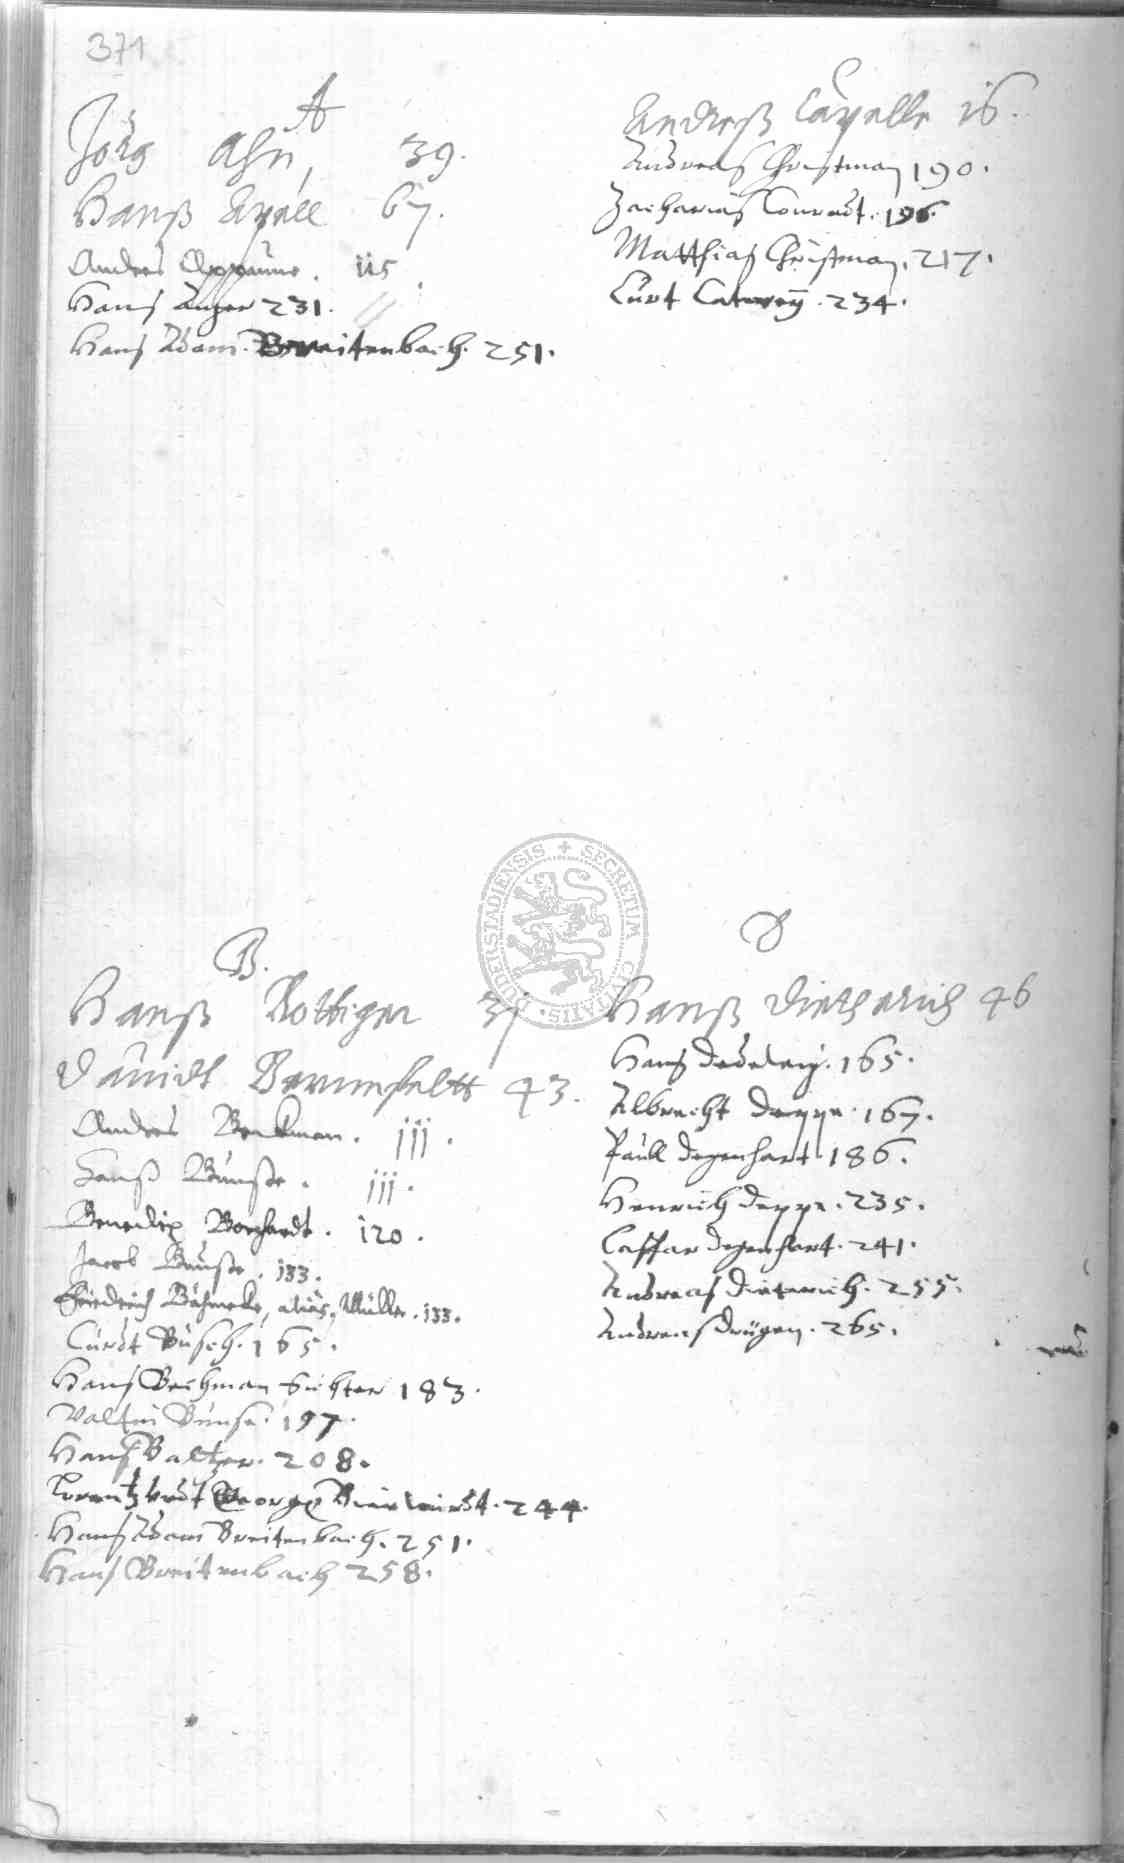 371
A
Jörg Ahn, 39.
Hanß Apell 67.
Andres Appunne. 115.
Hans Anger 231.
Hans Adam Breitenbach. 251.
C
Andreß Capelle 16.
Andreas Christman 190.
Zacharias Conradt. 196.
Matthias Christman. 217.
Curt 234.
B.
Hanß Bottiger 31
Daniell 43.
Andres Beckman. 111.
Hanß Bunste. 111.
Benedix Borchardt. 120.
Jacob Bunste. 133.
Friedrich Böhmeke, alias, Müller. 133.
Curdt Busch. 165.
Hans Bechman 183.
Valtin Bunse. 197.
Hans Baltzer. 208.
Lorentz undt Georg 244.
Hans Adam Breitenbach. 251.
Hans Breitenbach 258.
D
Hanß Dietherich 46
Hans 165.
Albrecht Deppe. 167.
Paull Degenhart 186.
Henrich Deppe. 235.
Caspar Degenhart. 241.
Andreas Dieterich. 255.
Andreas Drügen. 265.
SECRETUM CIVITATIS DUDERSTADIENSIS